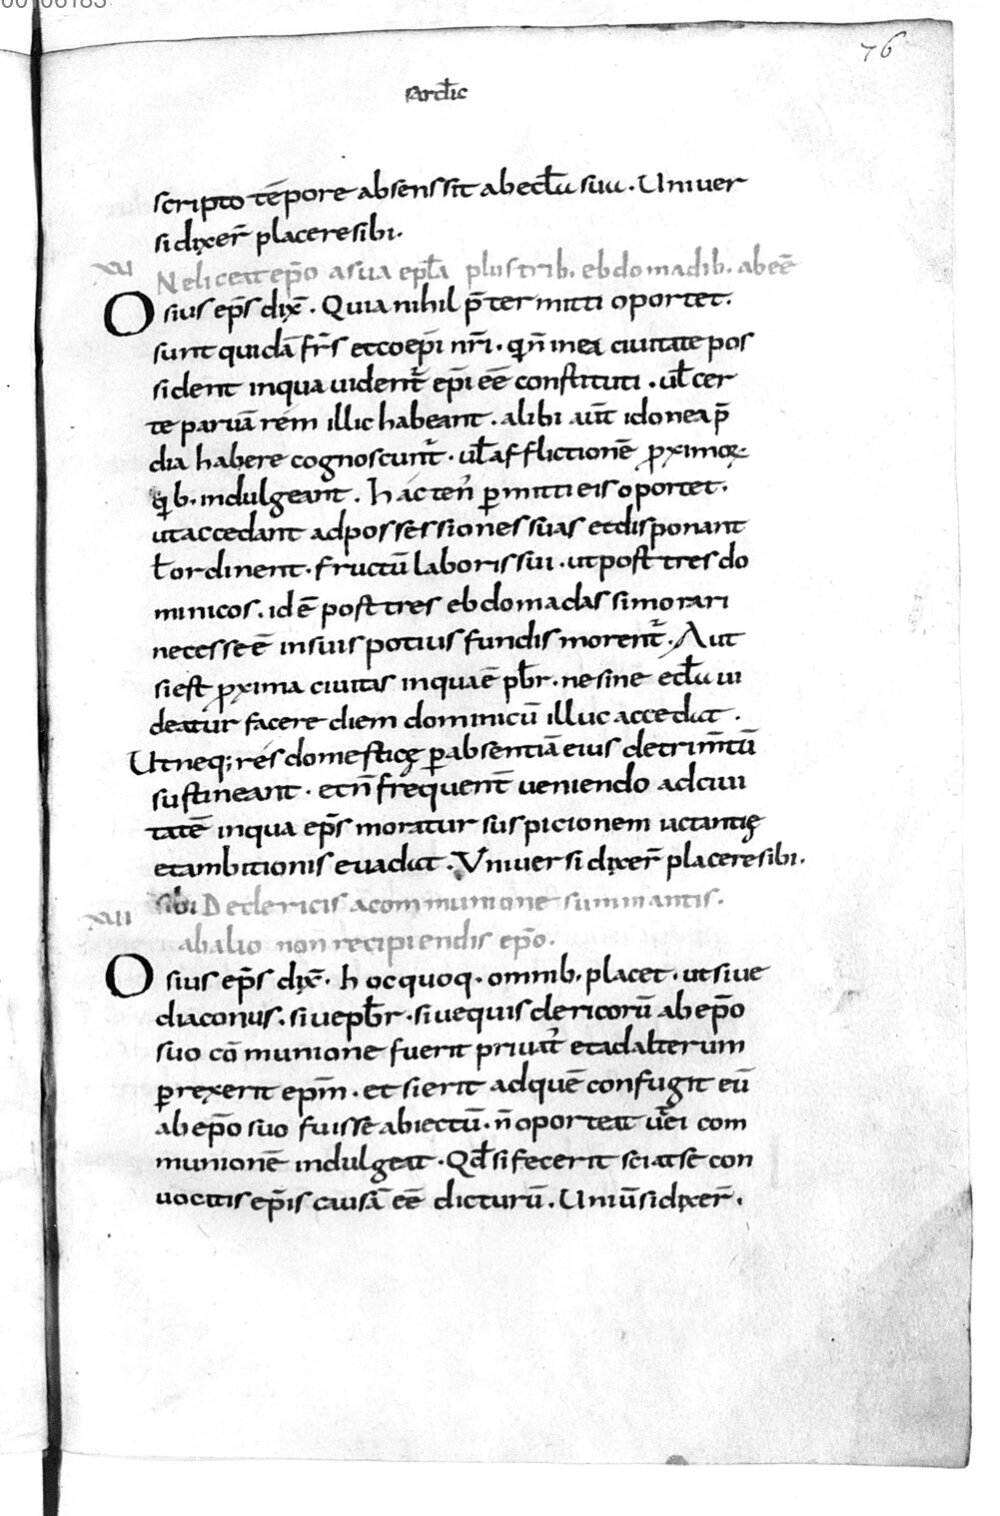 76
sardic̄
scripto tēpore absens sit ab ecl̄a sua. Univer
si dixer̄ placere sibi.
XVI Ne liceat ep̄o a sua epl̄a plus trib. ebdomadib. abeē
Osius ep̄s dix̄. Quia nihil p̄termitti oportet.
sunt quidā fr̄s et coep̄i nr̄i. qui n̄ in ea civitate pos
sident in qua videnт̄ ep̄i eē constituti. ul̄ cer
te parvā rem illic habeant. alibi aūt idonea p̄
dia habere cognoscunt̄. ul̄ afflictionē p̱ximoꝝ
qib. indulgeant. hactēn p̱mitti eis oportet.
ut accedant ad possessiones suas et disponant
l̄ ordinent. fructū laboris sui. ut post tres do
minicos. id ē post tres ebdomadas si morari
necesse ē in suis potius fundis morent̄. Aut
si est p̱xima civitas in qua ē pb̄r. ne sine ecl̄a vi
deatur facere diem dominicū illuc accedat.
Ut neq; res domesticę p̱ absentiā eius detrim̄tū
sustineant. et n̄ frequent̄ veniendo ad civi
tatē in qua ep̄s moratur suspicionem iactantię
et ambitionis evadat. Universi dixer̄ placere sibi.
XVII sibi De clericis a com̄munione summantis.
ab alio non̄ recipiendis ep̄o.
Osius ep̄s dix̄. hoc quoq. omnib. placet. ut sive
diaconus. sive pb̄r. sive quis clericorū ab ep̄o
suo cōmunione fuerit privat̄ et ad alterum
p̱rexerit ep̄m. et sierit ad quē confugit eū
ab ep̄o suo fuisse abiectū. n̄ oporteat ut̄ ei com
munionē indulgeat. Qd̄ si fecerit sciat se con
vocatis ep̄is causā eē dicturū. Univ̄si dixer̄.